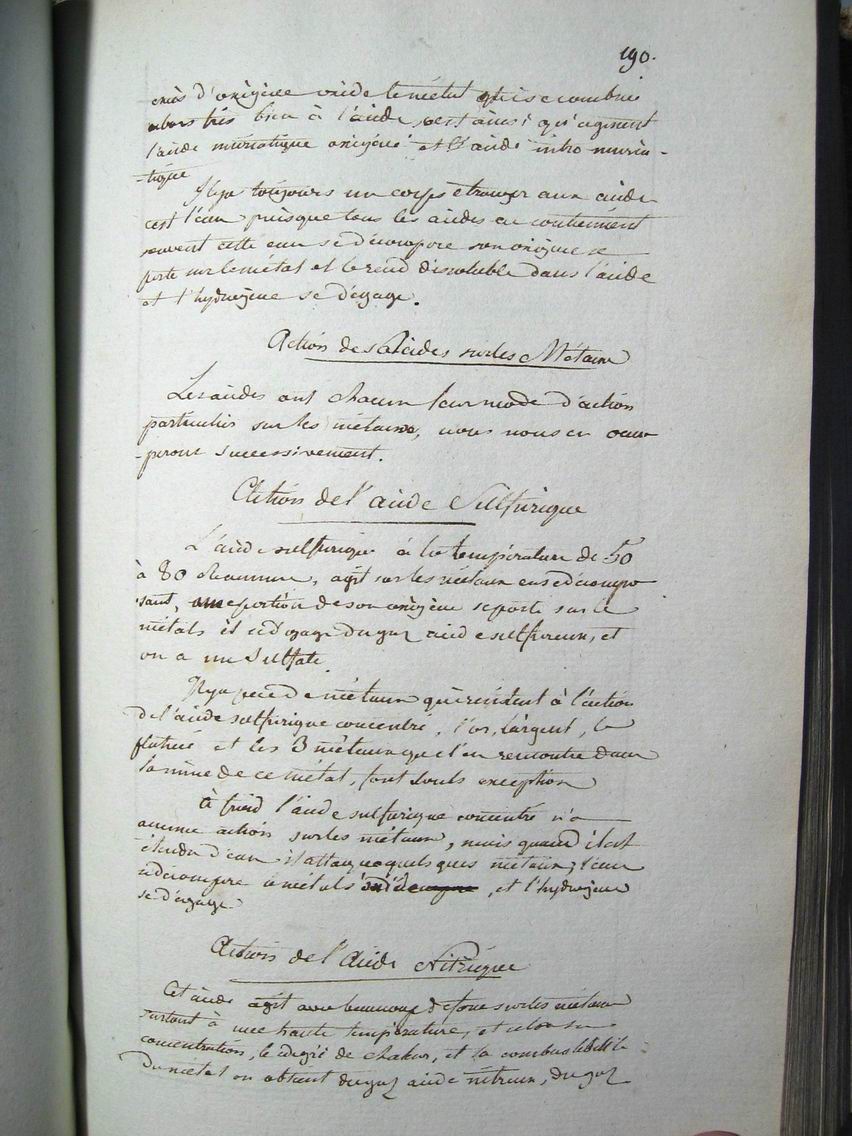 190.
excès d'oxigène oxide le métal qui se combine
alors très bien à l'acide, c'est ainsi qu'agissent
l'acide muriatique oxigéné et l'acide nitro muria-
-tique
Il y a toujours un corps étranger aux acides
c'est l'eau puisque tous les acides en contiennent
souvent cette eau se décompose son oxigène se
porte sur le métal et le rend dissoluble dans l'acide
et l'hydrogène se dégage.
Action des Acides sur les Métaux
Les acides ont chacun leur mode d'action
particulier sur les métaux, nous nous en occu
-perons successivement.
Action de l'acide Sulfurique
L'acide sulfurique à la température de 50
à 80 Reaumur, agit sur les métaux en se décompo
-sant, une portion de son oxigène se porte sur le
métals il se dégage du gaz acide sulfureux, et
on a un Sulfate.
Il y a peu de métaux qui résistent à l'action
de l'acide sulfurique concentré, l'or, l'argent, le
platine et les 3 métaux que l'on rencontre dans
la mine de ce métal, font seuls exception
à froid l'acide sulfurique concentré n'a
aucune action sur les métaux, mais quand il est
étendu d'eau il attaque quelques métaux; l'eau
se décompose le métals s'oxide, et l'hydrogène
se dégage.
Action de l'Acide Nitrique
Cet acide agit avec beaucoup de force sur les métaux
surtout à une haute température, et selon sa
concentration, le degré de chaleur, et la combustibilité
du métal on obtient du gaz acide nitreux, du gaz